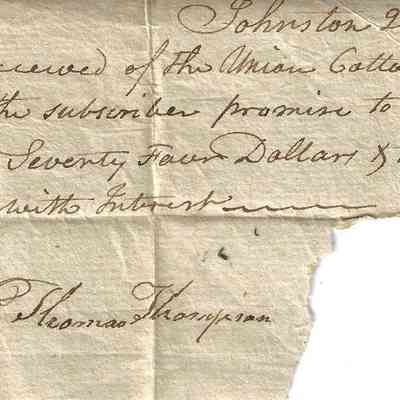 Johnston 2
eceived of the Union Cotto
the subscriber promise to
Seventy Four Dollars &
with Interest
Thomas Thompson